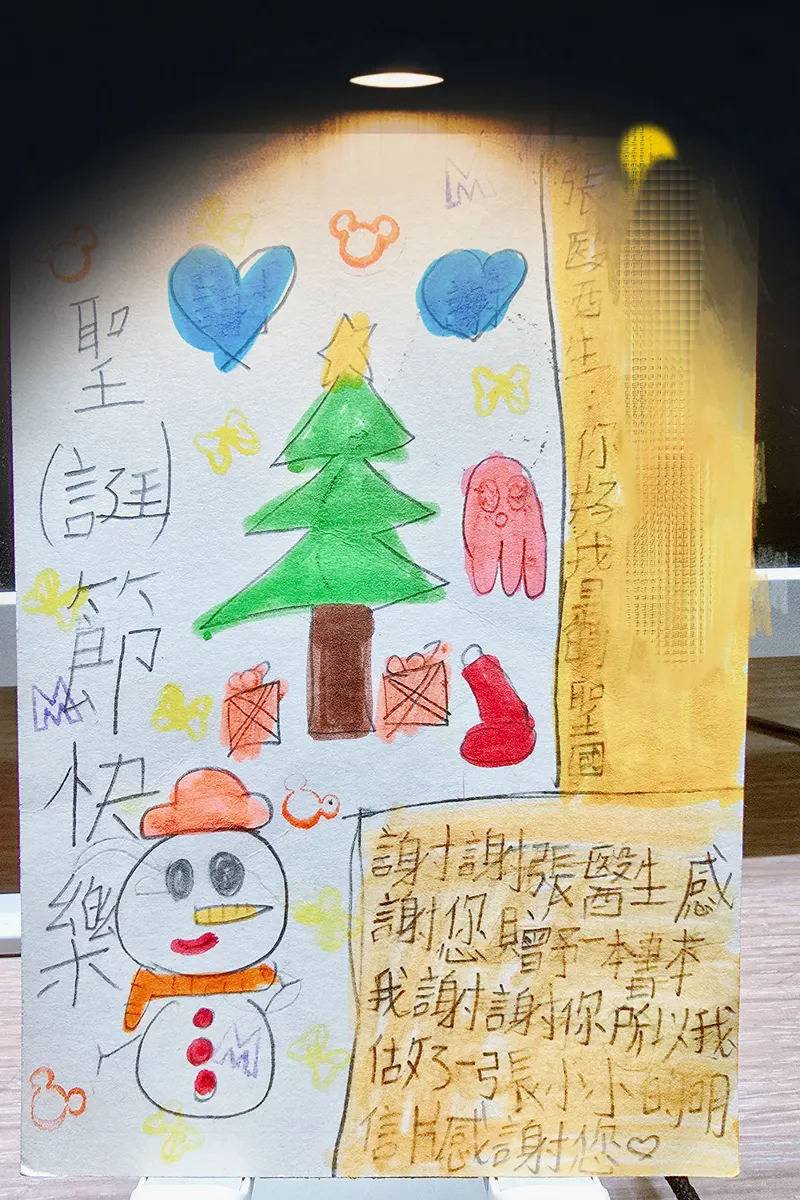 張醫生：你好我是劉聖國
聖
(誕)
節
快
樂
謝
謝
謝謝張醫生感
謝您贈予一本書本
我謝謝你所以我
做了一張小小的明
信片感謝您♡